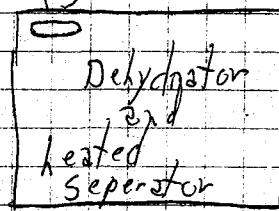 Dehydrator
and
heated
seperator